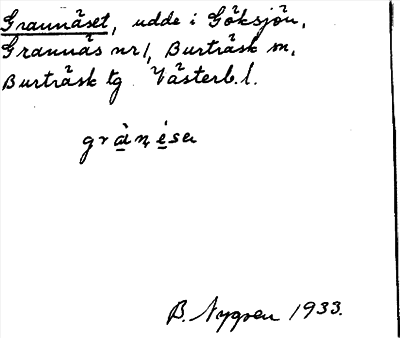 Grannäset, udde i Göksjön,
Grannäs nr 1, Burträsk sn,
Burträsk tg Västerb. l.
B. Nygren 1933.